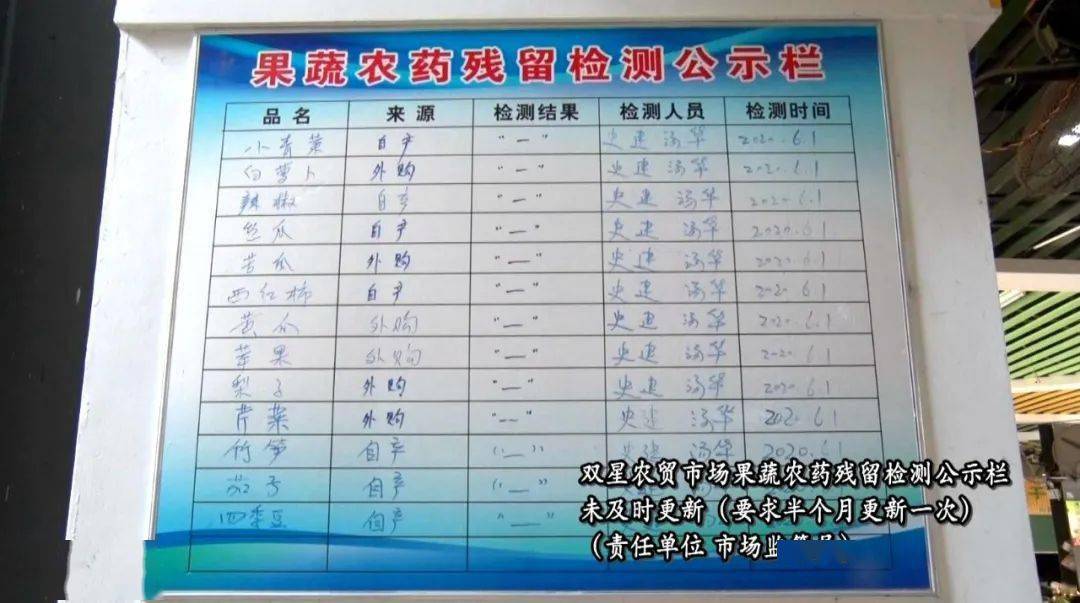 果蔬农药残留检测公示栏
品名 来源 检测结果 检测人员 检测时间
小青菜 自产 "—" 史建 汤华 2020.6.1
白萝卜 外购 "—" 史建 汤华 2020.6.1
辣椒 自产 "—" 史建 汤华 2020.6.1
丝瓜 自产 "—" 史建 汤华 2020.6.1
苦瓜 外购 "—" 史建 汤华 2020.6.1
西红柿 自产 "—" 史建 汤华 2020.6.1
黄瓜 外购 "—" 史建 汤华 2020.6.1
苹果 外购 "—" 史建 汤华 2020.6.1
梨子 外购 "—" 史建 汤华 2020.6.1
芹菜 外购 "—" 史建 汤华 2020.6.1
竹笋 自产 "—" 史建 汤华 2020.6.1
茄子 自产 "—"
四季豆 自产 "—"
双星农贸市场果蔬农药残留检测公示栏
未及时更新（要求半个月更新一次）
（责任单位 市场监